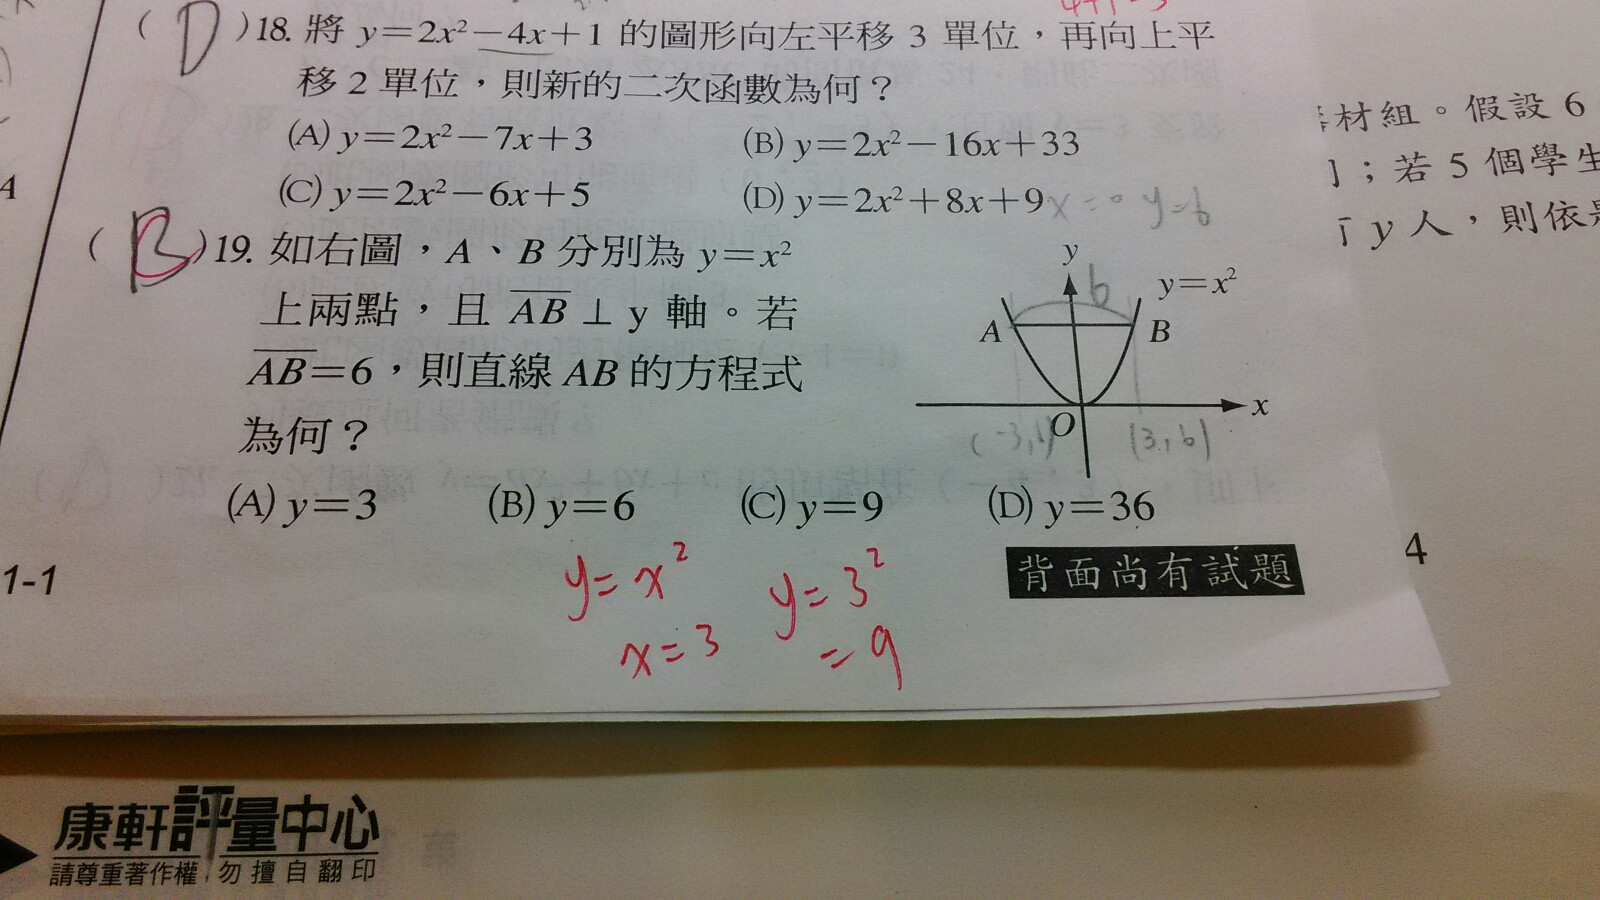 (D)18. 將 y=2x²−4x+1 的圖形向左平移 3 單位，再向上平
移 2 單位，則新的二次函數為何？
(A) y=2x²−7x+3 (B) y=2x²−16x+33
(C) y=2x²−6x+5 (D) y=2x²+8x+9
x=0 y=6
(B)19. 如右圖，A、B 分別為 y=x²
上兩點，且 A̅B̅⊥y 軸。若
A̅B̅=6，則直線 AB 的方程式
為何？
y
6
y=x²
A B
O x
(3,6)
(A) y=3 (B) y=6 (C) y=9 (D) y=36
y=x² y=3²
x=3 =9
背面尚有試題
1-1
4
材組。假設 6
；若 5 個學生
y 人，則依
A
康軒評量中心
請尊重著作權 勿擅自翻印